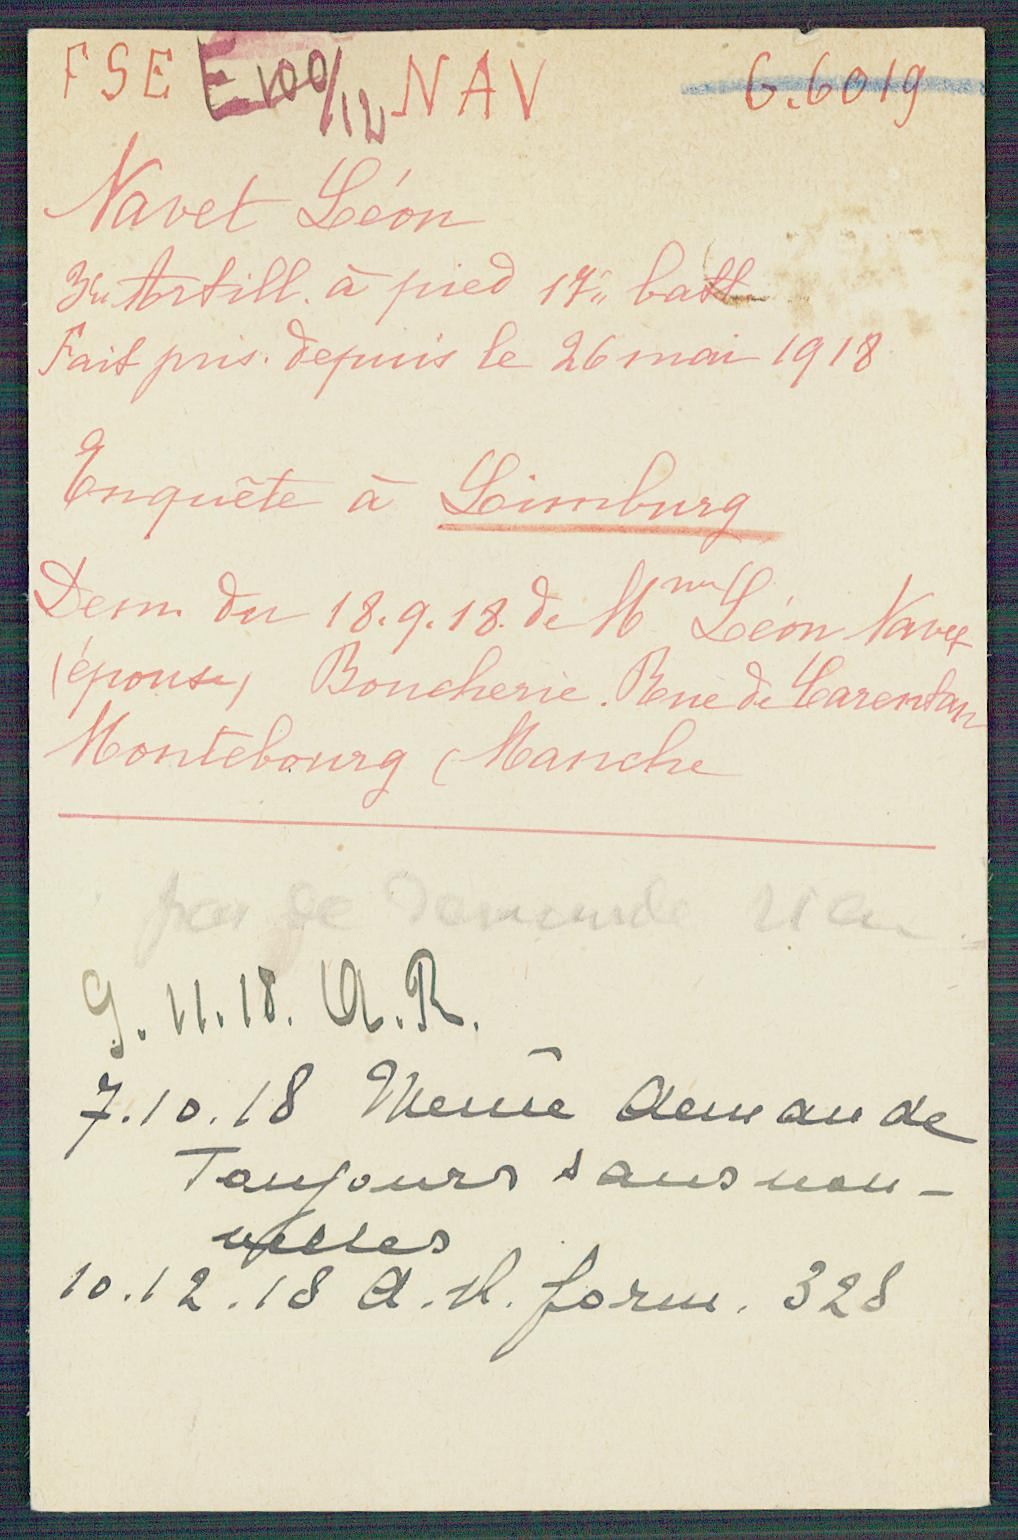 FSE E 100/12 NAV G.6019
Navet Léon
3e Artill. à pied 17e batt
Fait pris. depuis le 26 mai 1918
Enquête à Limburg
Dem. du 18.9.18. de Mme Léon Navet
(épouse) Boucherie. Rue de Carentan
Montebourg (Manche
pas de demande
9.11.18. A.R.
7.10.18 Même demande
Toujours sans nou-
velles
10.12.18 A.N. form. 328